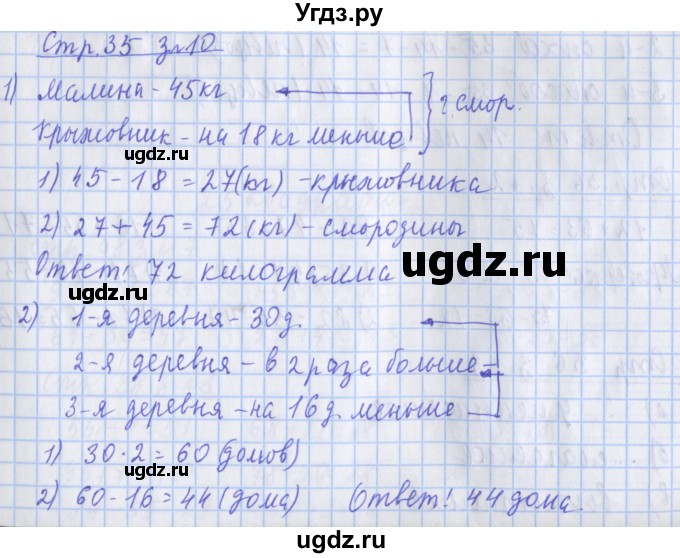 Угдз.ру
Стр. 35 з.10
1) Малина - 45 кг
? смор.
Крыжовник - на 18 кг меньше
ugdz.ru
ugdz.ru
1) 45 - 18 = 27(кг) - крыжовника
2) 27 + 45 = 72 (кг) - смородины
ugdz.ru
Ответ: 72 килограмма
ugdz.ru
2) 1-я деревня - 30 д.
2-я деревня - в 2 раза больше
3-я деревня - на 16 д. меньше
1) 30 · 2 = 60 (домов)
ugdz.ru
ugdz.ru
2) 60 - 16 = 44 (дома) Ответ: 44 дома.